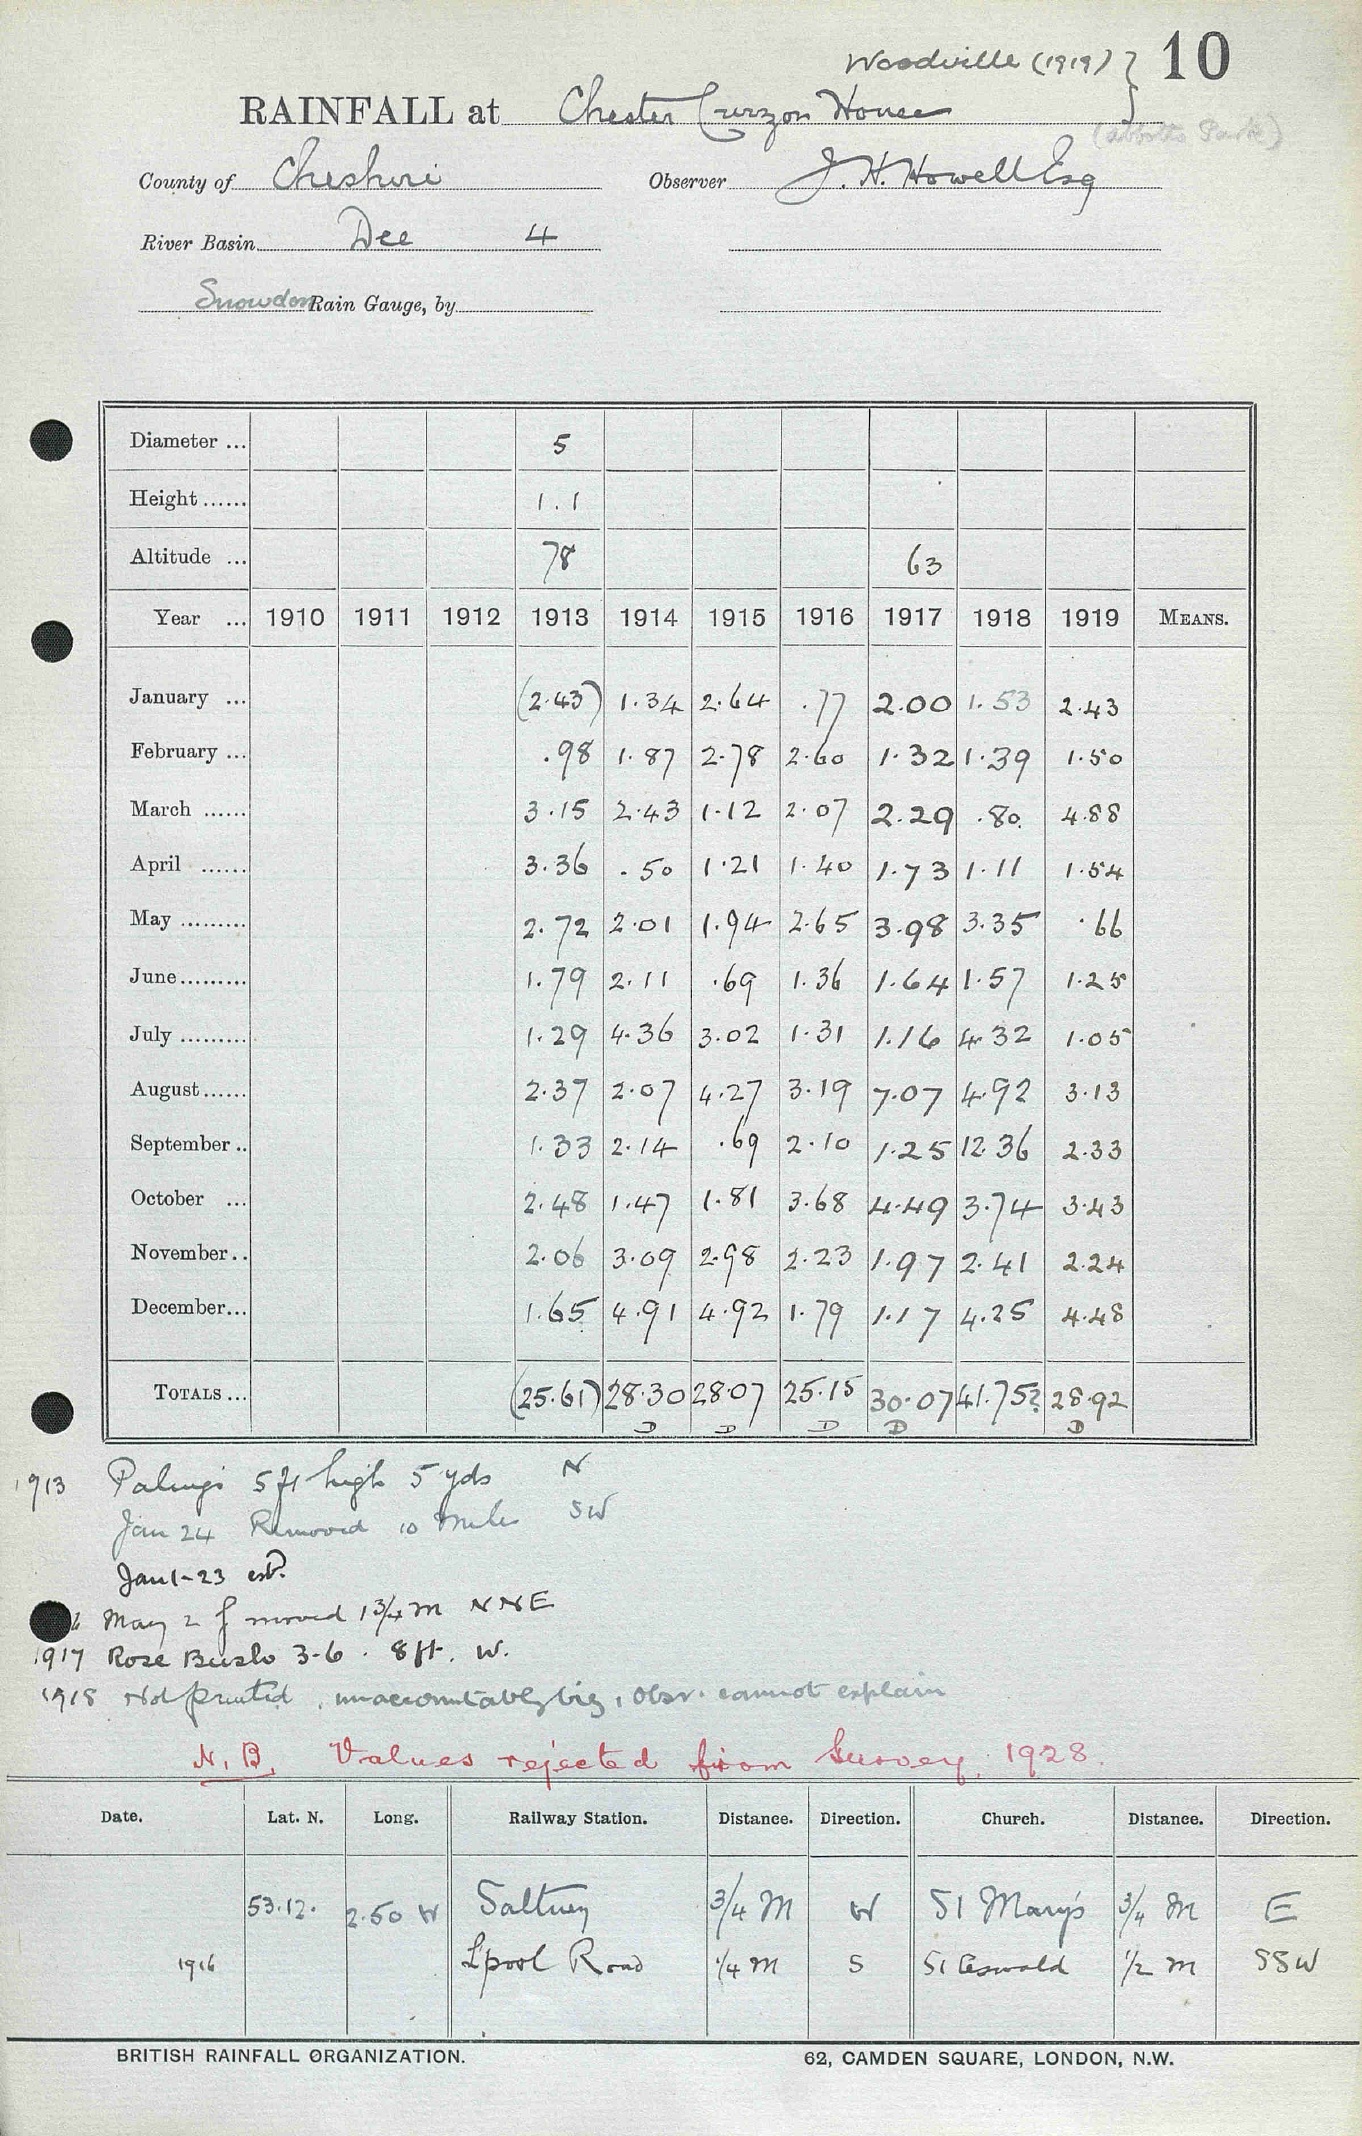 Woodville (1919) } 10
RAINFALL at Chester Curzon House
(Abbotts Park)
County of Cheshire Observer J. H. Howell Esq
River Basin Dee 4
Snowdon Rain Gauge, by
Diameter ... 5
Height ...... 1.1
Altitude ... 78 63
Year ... 1910 1911 1912 1913 1914 1915 1916 1917 1918 1919 MEANS.
January ... (2.43) 1.34 2.64 .77 2.00 1.53 2.43
February ... .98 1.87 2.78 2.60 1.32 1.39 1.50
March ...... 3.15 2.43 1.12 2.07 2.29 .80 4.88
April ...... 3.36 .50 1.21 1.40 1.73 1.11 1.54
May ......... 2.72 2.01 1.94 2.65 3.98 3.35 .66
June ......... 1.79 2.11 .69 1.36 1.64 1.57 1.25
July ......... 1.29 4.36 3.02 1.31 1.16 4.32 1.05
August ...... 2.37 2.07 4.27 3.19 7.07 4.92 3.13
September .. 1.33 2.14 .69 2.10 1.25 12.36 2.33
October ... 2.48 1.47 1.81 3.68 4.49 3.74 3.43
November .. 2.06 3.09 2.98 2.23 1.97 2.41 2.24
December ... 1.65 4.91 4.92 1.79 1.17 4.25 4.48
TOTALS ... (25.61) 28.30 28.07 25.15 30.07 41.75? 28.92
D D D D D
1913 Palings 5 ft high 5 yds N
Jan 24 Removed 10 Miles SW
Jan 1-23 est.
May 2 moved 1 3/4 M NNE
1917 Rose Bush 3-6 . 8 ft. W.
1918 Not printed, unaccountably big, Obsr. cannot explain
N.B. Values rejected from Survey, 1928.
Date. Lat. N. Long. Railway Station. Distance. Direction. Church. Distance. Direction.
53.12. 2.50 W Saltney 3/4 M W St Mary's 3/4 M E
1916 Lpool Road 1/4 M S St Oswald 1/2 M SSW
BRITISH RAINFALL ORGANIZATION. 62, CAMDEN SQUARE, LONDON, N.W.